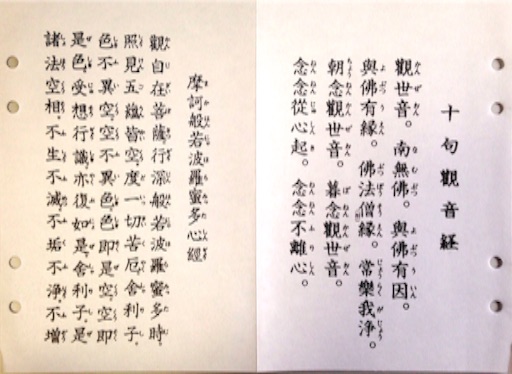 十句觀音経
觀世音。南無佛。與佛有因。
與佛有縁。佛法僧縁。常樂我浄。
朝念觀世音。暮念觀世音。
念念從心起。念念不離心。
摩訶般若波羅蜜多心經
觀自在菩薩。行深般若波羅蜜多時。
照見五蘊皆空。度一切苦厄。舍利子。
色不異空。空不異色。色即是空。空即
是色。受想行識。亦復如是。舍利子。是
諸法空相。不生不滅。不垢不淨。不增